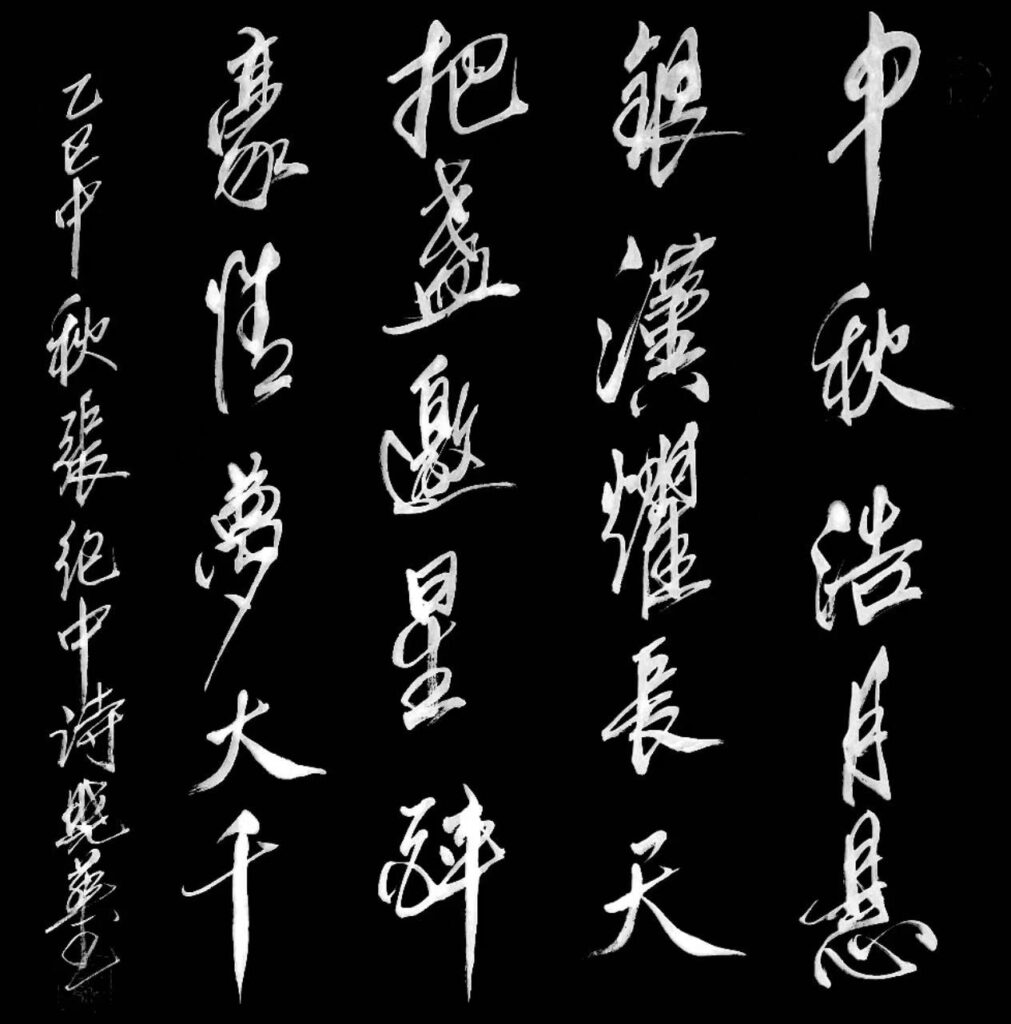 中秋浩月懸
銀漢耀長天
把盞邀星醉
豪情夢大千
乙巳中秋張紀中诗曉華